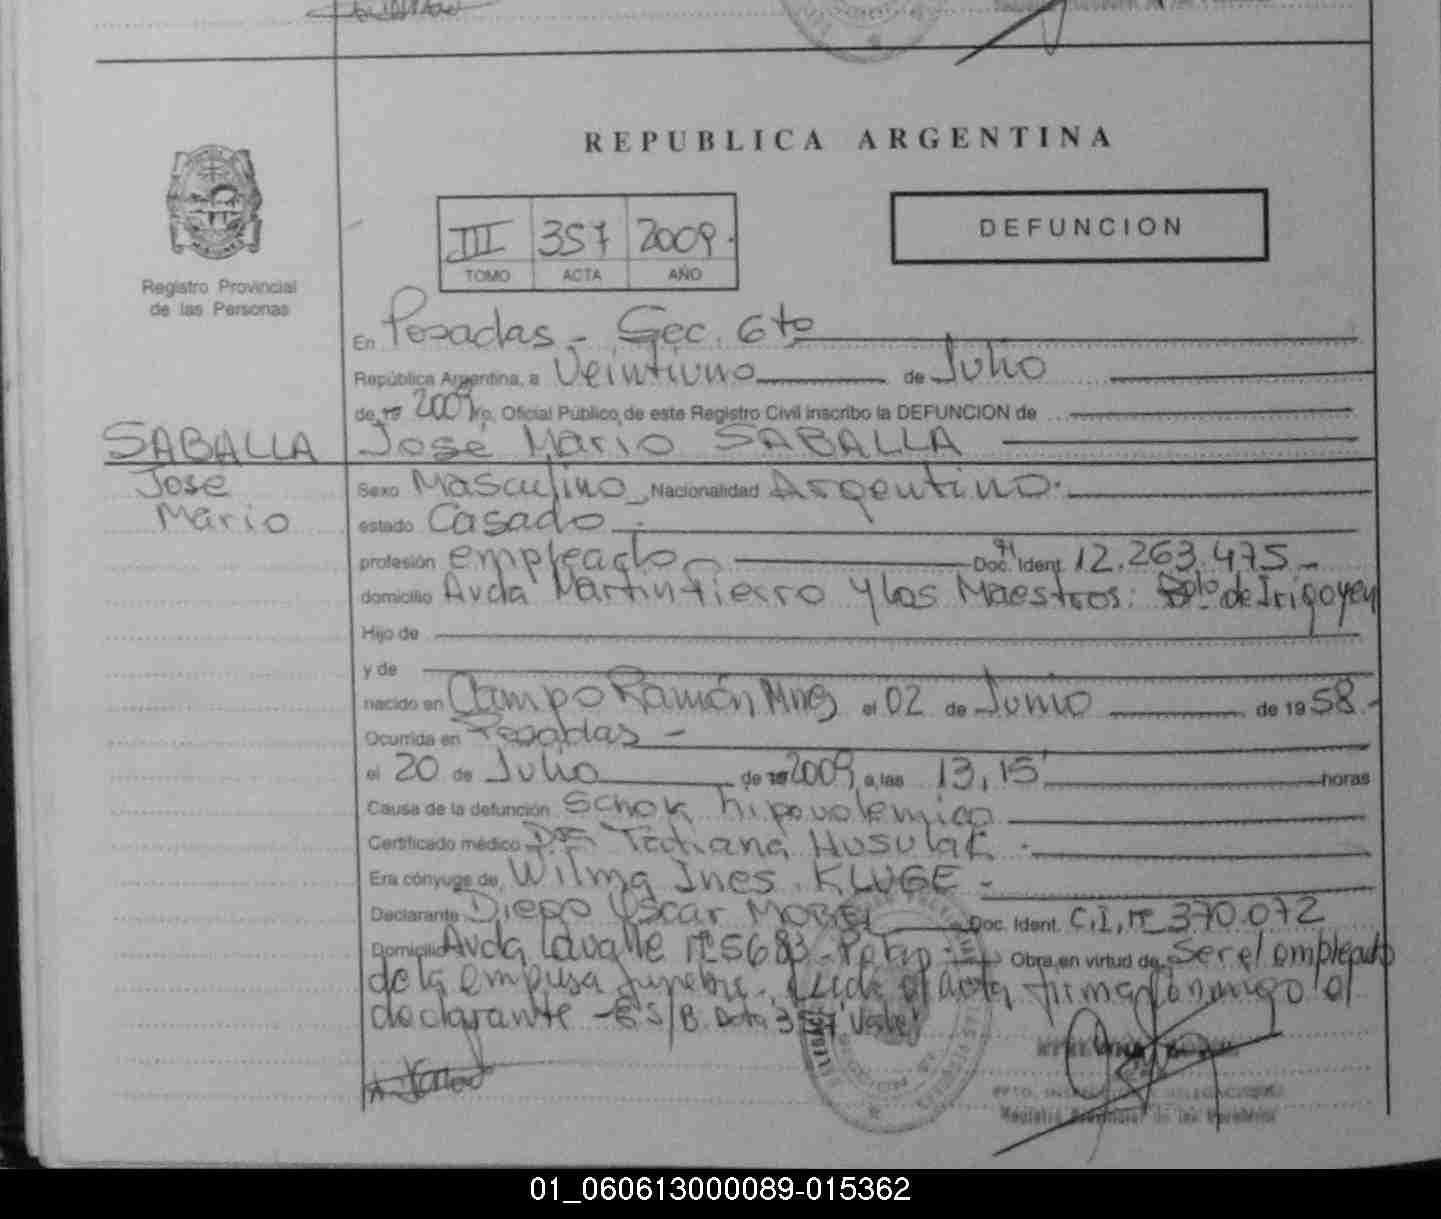 REPUBLICA ARGENTINA
III 357 2009.
TOMO ACTA AÑO
DEFUNCION
Registro Provincial
de las Personas
En Posadas - Sec. 6to
República Argentina, a Veintiuno de Julio
de 19 2009 yo, Oficial Público de este Registro Civil inscribo la DEFUNCION de
SABALLA José Mario SABALLA
Jose
Mario
Sexo Masculino Nacionalidad Argentino.
estado Casado.
profesión empleado Doc. Ident. 12.263.475-
domicilio Avda Martin Fierro y Los Maestros. Bdo. de Irigoyen
Hijo de
y de
nacido en Campo Ramón Mnes el 02 de Junio de 19 58-
Ocurrida en Posadas-
el 20 de Julio de 19 2009 a las 13,15 horas
Causa de la defunción Schok hipovolemico
Certificado médico Dra Tatiana Husulak.
Era cónyuge de Wilma Ines KLUGE-
Declarante Diego Oscar MOREL Doc. Ident. C.I. nº 370.072
Domicilio Avda Lavalle nº 5683- Obra en virtud de Ser el empleado
de la empresa funebre. Leida el acta firma conmigo el
declarante - E S/B. 357 Vale
Registro Provincial de las Personas
01_060613000089-015362